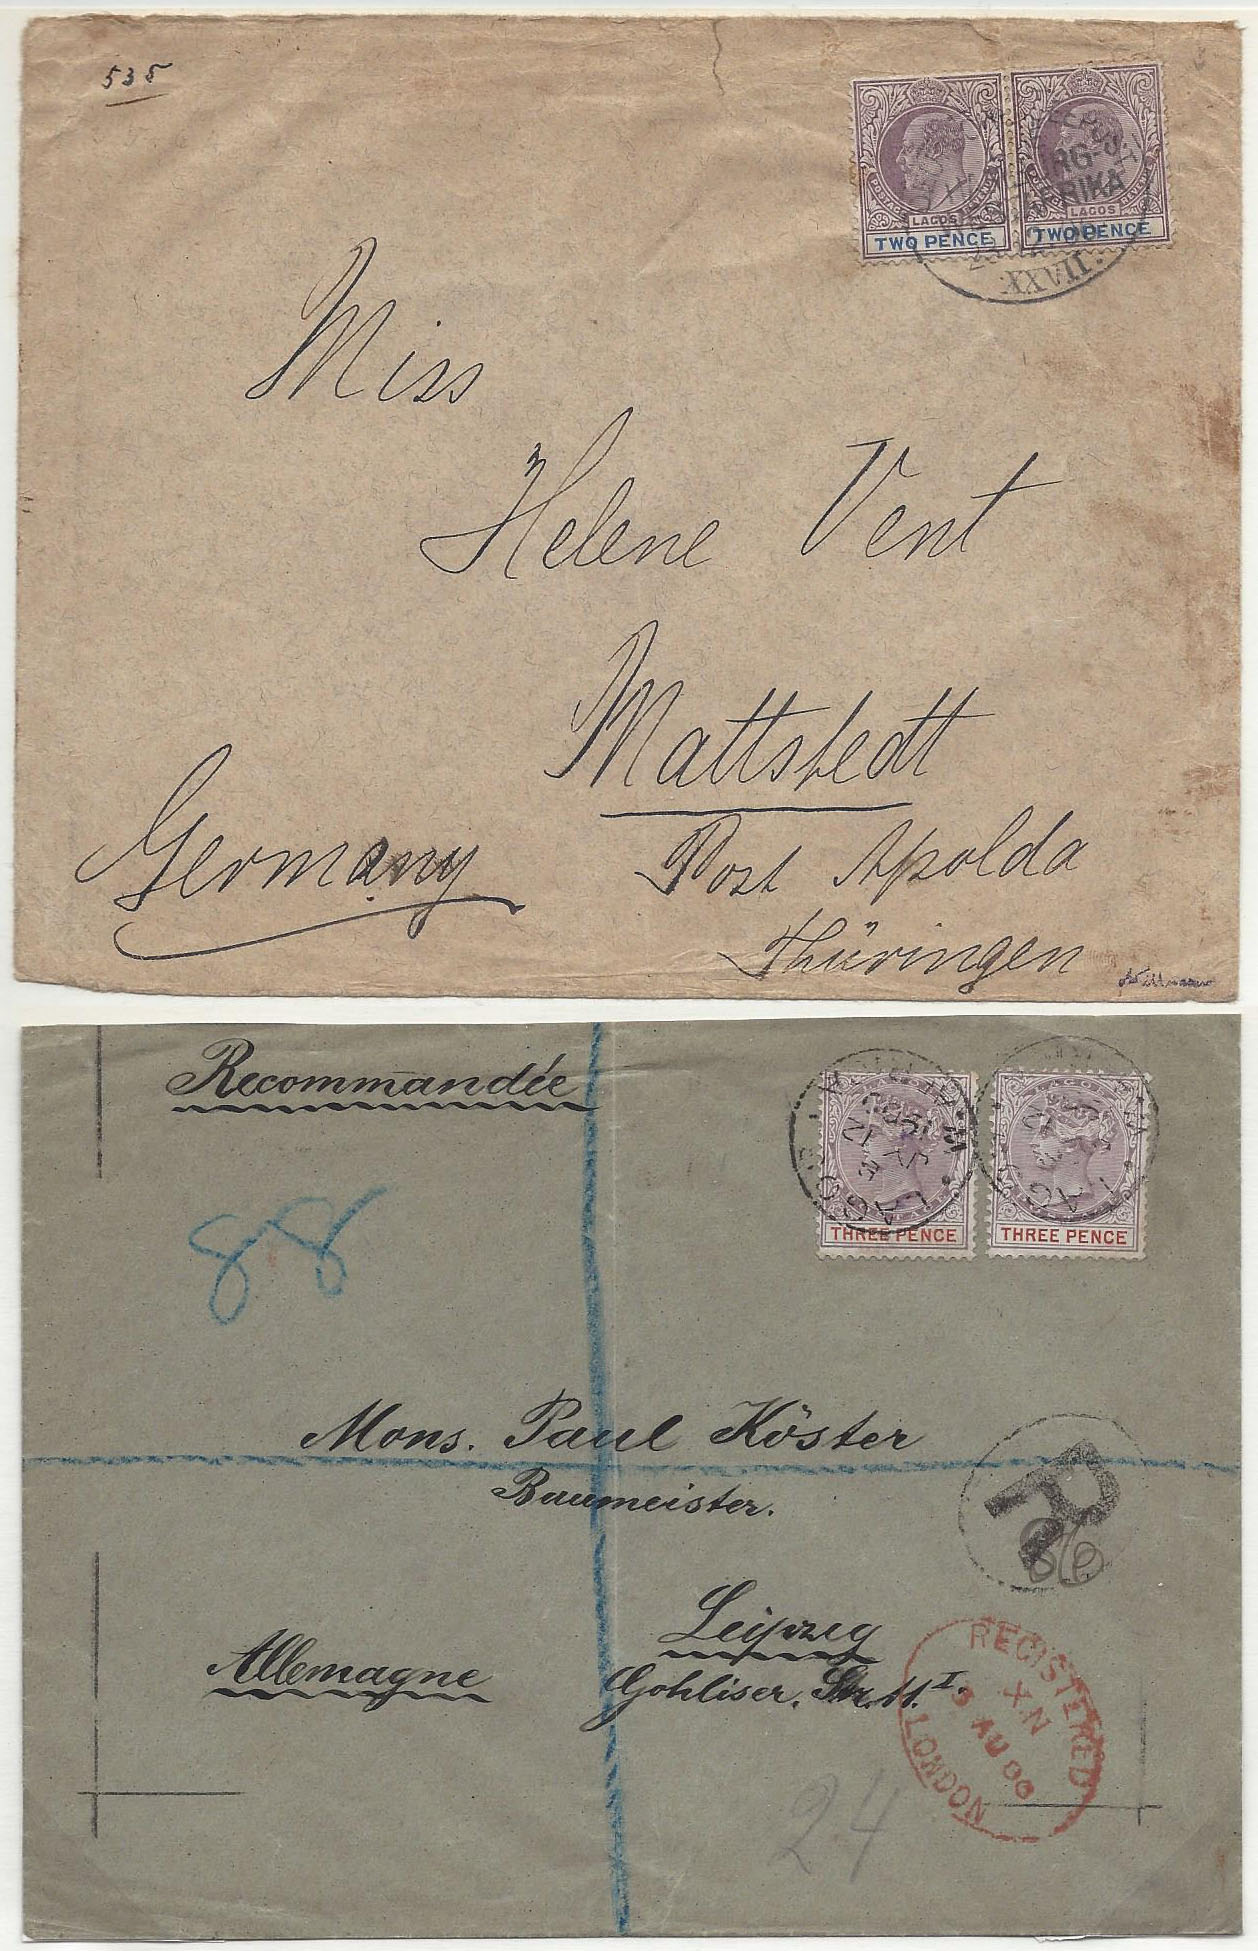 535
LAGOS LAGOS
TWO PENCE TWO PENCE
XXVII
Miss
Helene Vent
Mattstedt
Germany
Post Apolda
Thüringen
Recommandée
LAGOS
THREE PENCE THREE PENCE
88
Mons. Paul Köster
Baumeister.
R
86
Leipzig
Allemagne
Gohliser. Str. 11.I.
REGISTERED
AU 00
LONDON
24